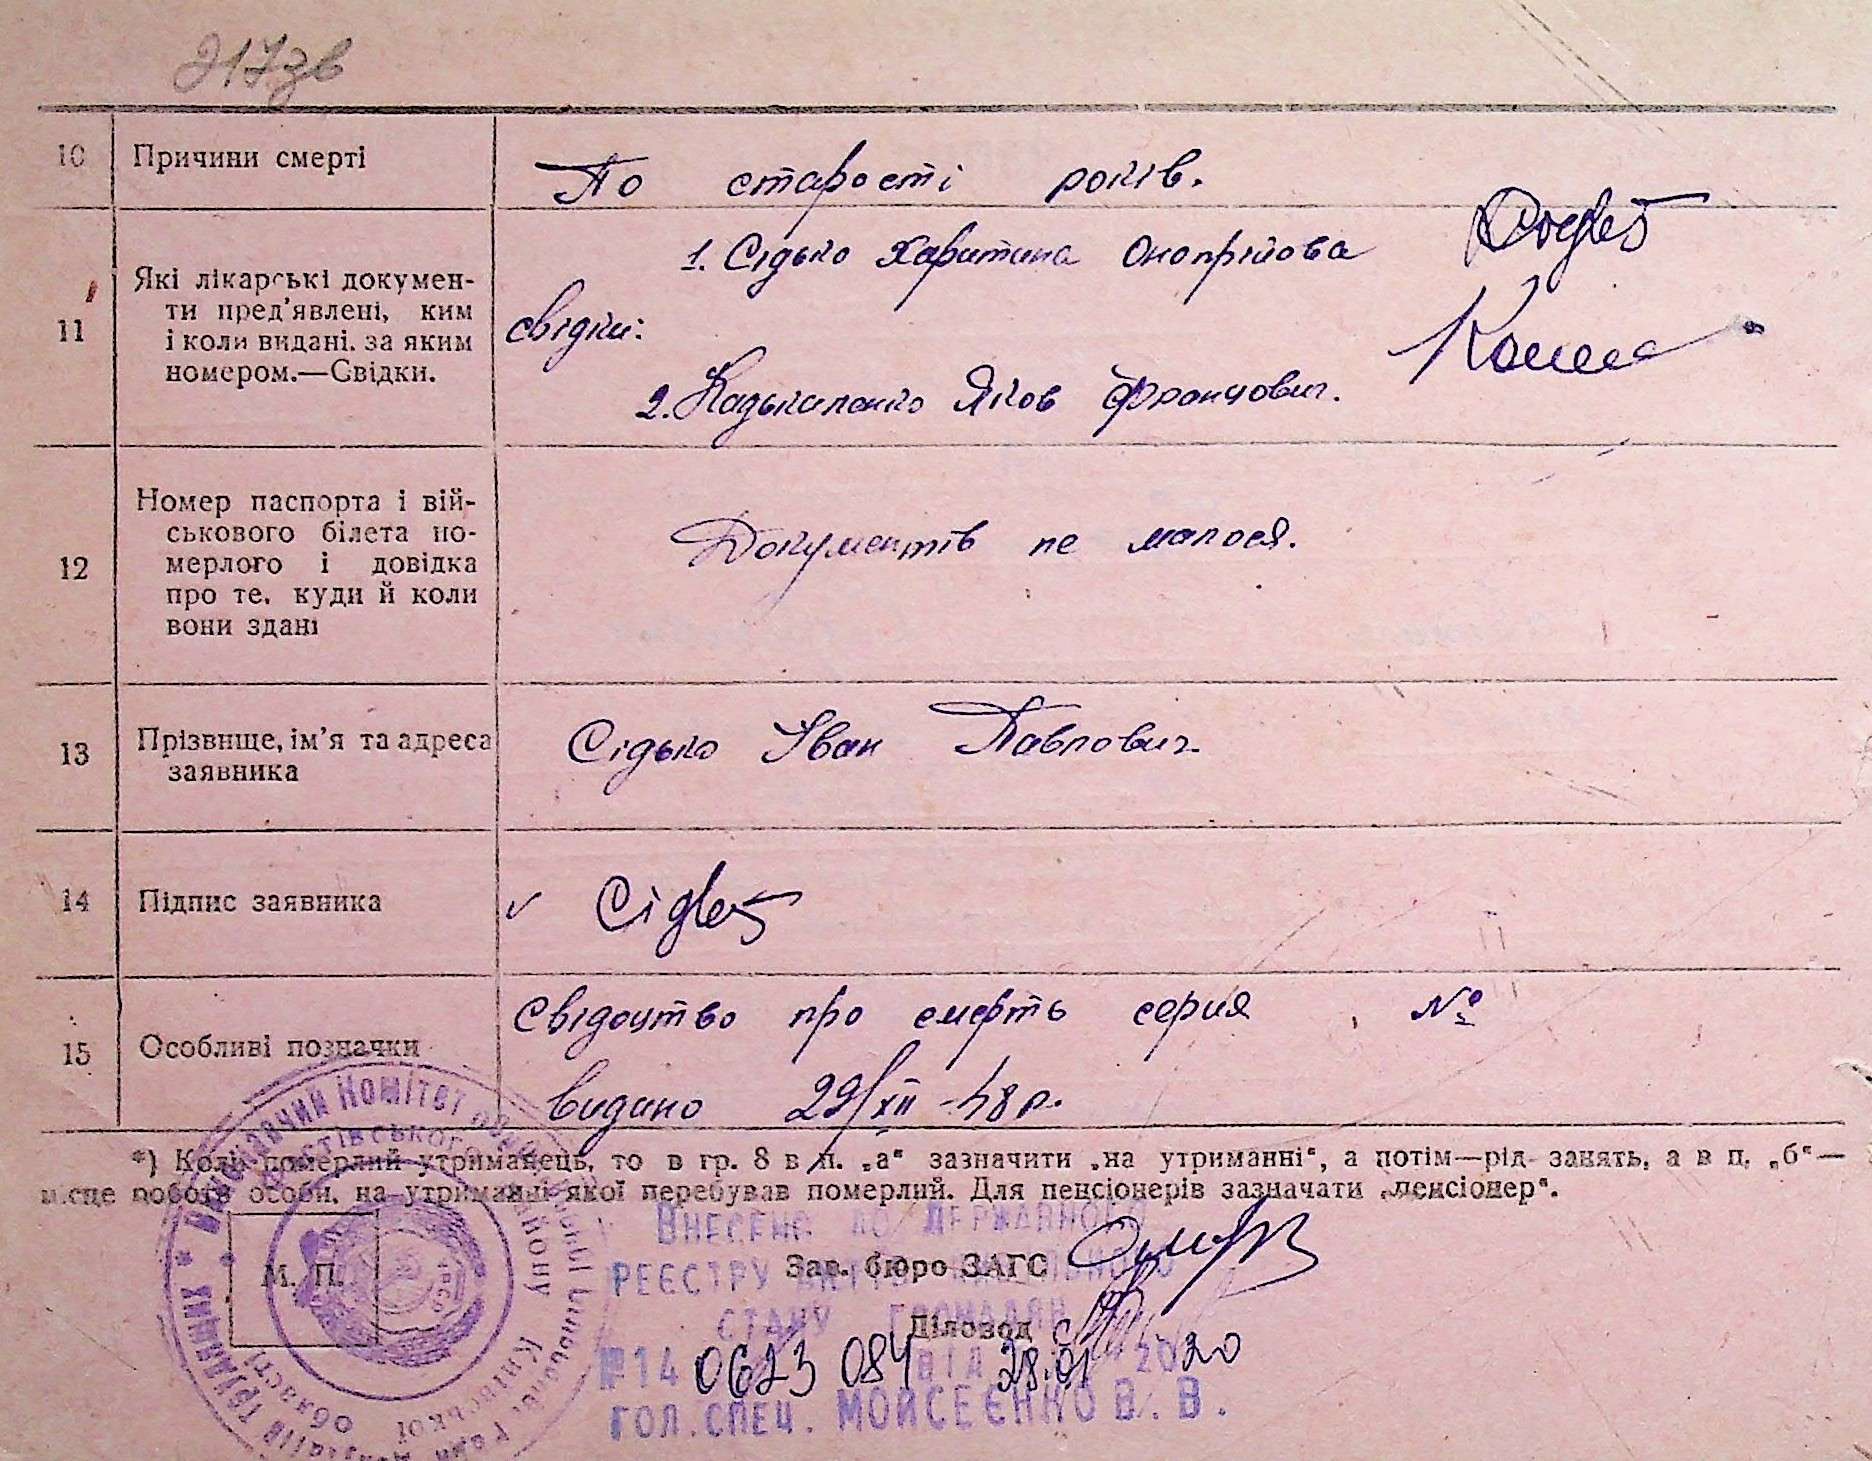 217зв
10 Причини смерті
По старості років.
11 Які лікарські докумен-
ти пред'явлені, ким
і коли видані, за яким
номером.—Свідки.
1. Сідько Харитина Оноприйовна
свідки:
2. Яков Францович.
12 Номер паспорта і вій-
ськового білета по-
мерлого і довідка
про те, куди й коли
вони здані
Документів не малося.
13 Прізвище, ім'я та адреса
заявника
Сідько Іван Павлович.
14 Підпис заявника
✓ Сідько
15 Особливі позначки
Свідоцтво про смерть серия , №
видано 29/XII-48 р.
*) Коли померлий утриманець, то в гр. 8 в п. „а“ зазначити „на утриманні“, а потім—рід занять, а в п. „б“—
місце роботи особи, на утриманні якої перебував померлий. Для пенсіонерів зазначати „пенсіонер“.
М. П.
Зав. бюро ЗАГС
Діловод
Виконавчий Комітет
Київської області
УРСР
ВНЕСЕНО ДО ДЕРЖАВНОГО
РЕЄСТРУ АКТІВ ЦИВІЛЬНОГО
СТАНУ ГРОМАДЯН
№14 0623 084 ВІД 28.01 2020
ГОЛ.СПЕЦ. МОЙСЕЄНКО В. В.